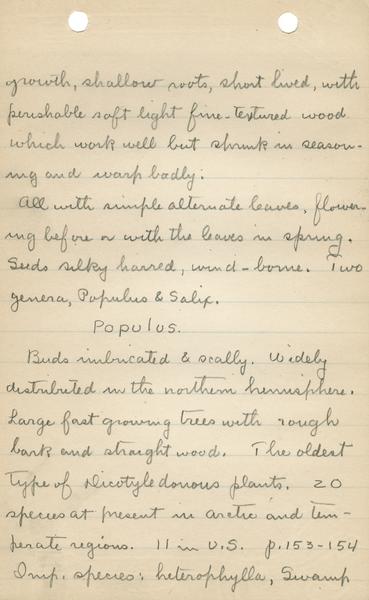 growth, shallow roots, short lived, with
perishable soft light fine-textured wood
which work well but shrunk in season-
ing and warp badly.
All with simple alternate leaves, flower-
ing before or with the leaves in spring.
Seeds silky harred, wind-borne. Two
genera, Populus & Salix.
Populus.
Buds imbricated & scally. Widely
distributed in the northern hemisphere.
Large fast growing trees with rough
bark and straight wood. The oldest
type of Dicotyledonous plants. 20
species at present in arctic and tem-
perate regions. 11 in U.S. p.153-154
Imp. species: heterophylla, Swamp